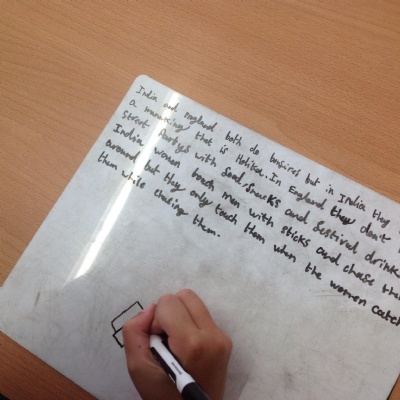 India and england both do bonfires but in India they
a manaking that is Holika. In England they don't
street Partys with food, snacks and festival drink
India women touch men with sticks and chase the
around but they only touch them when the women catch
them while chasing them.